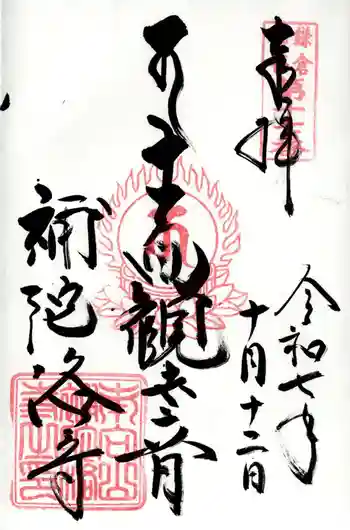 奉拝
令和七年
十月十二日
十一面観世音
補陀洛寺